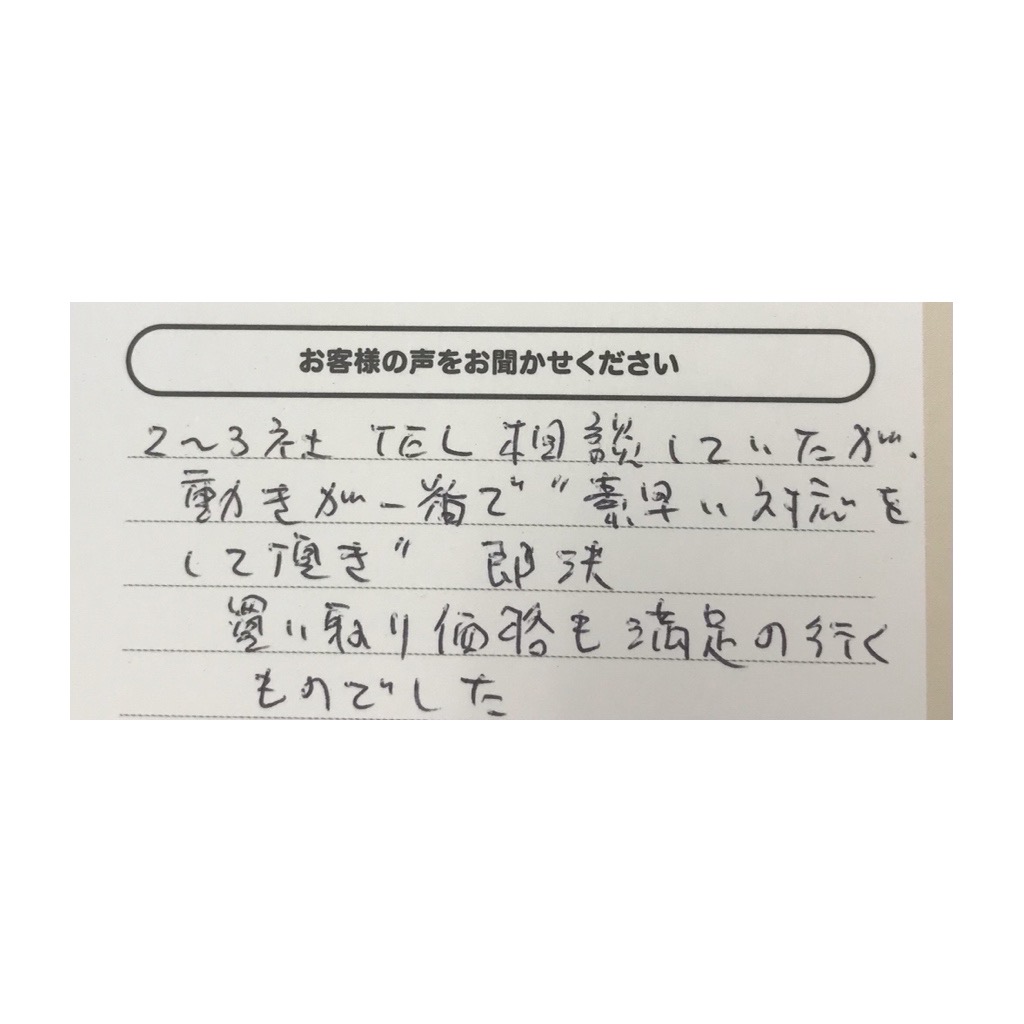 お客様の声をお聞かせください
2～3社 TEL 相談していたが、
動きが一番で"素早い対応を
して頂き" 即決
買い取り価格も満足の行く
ものでした